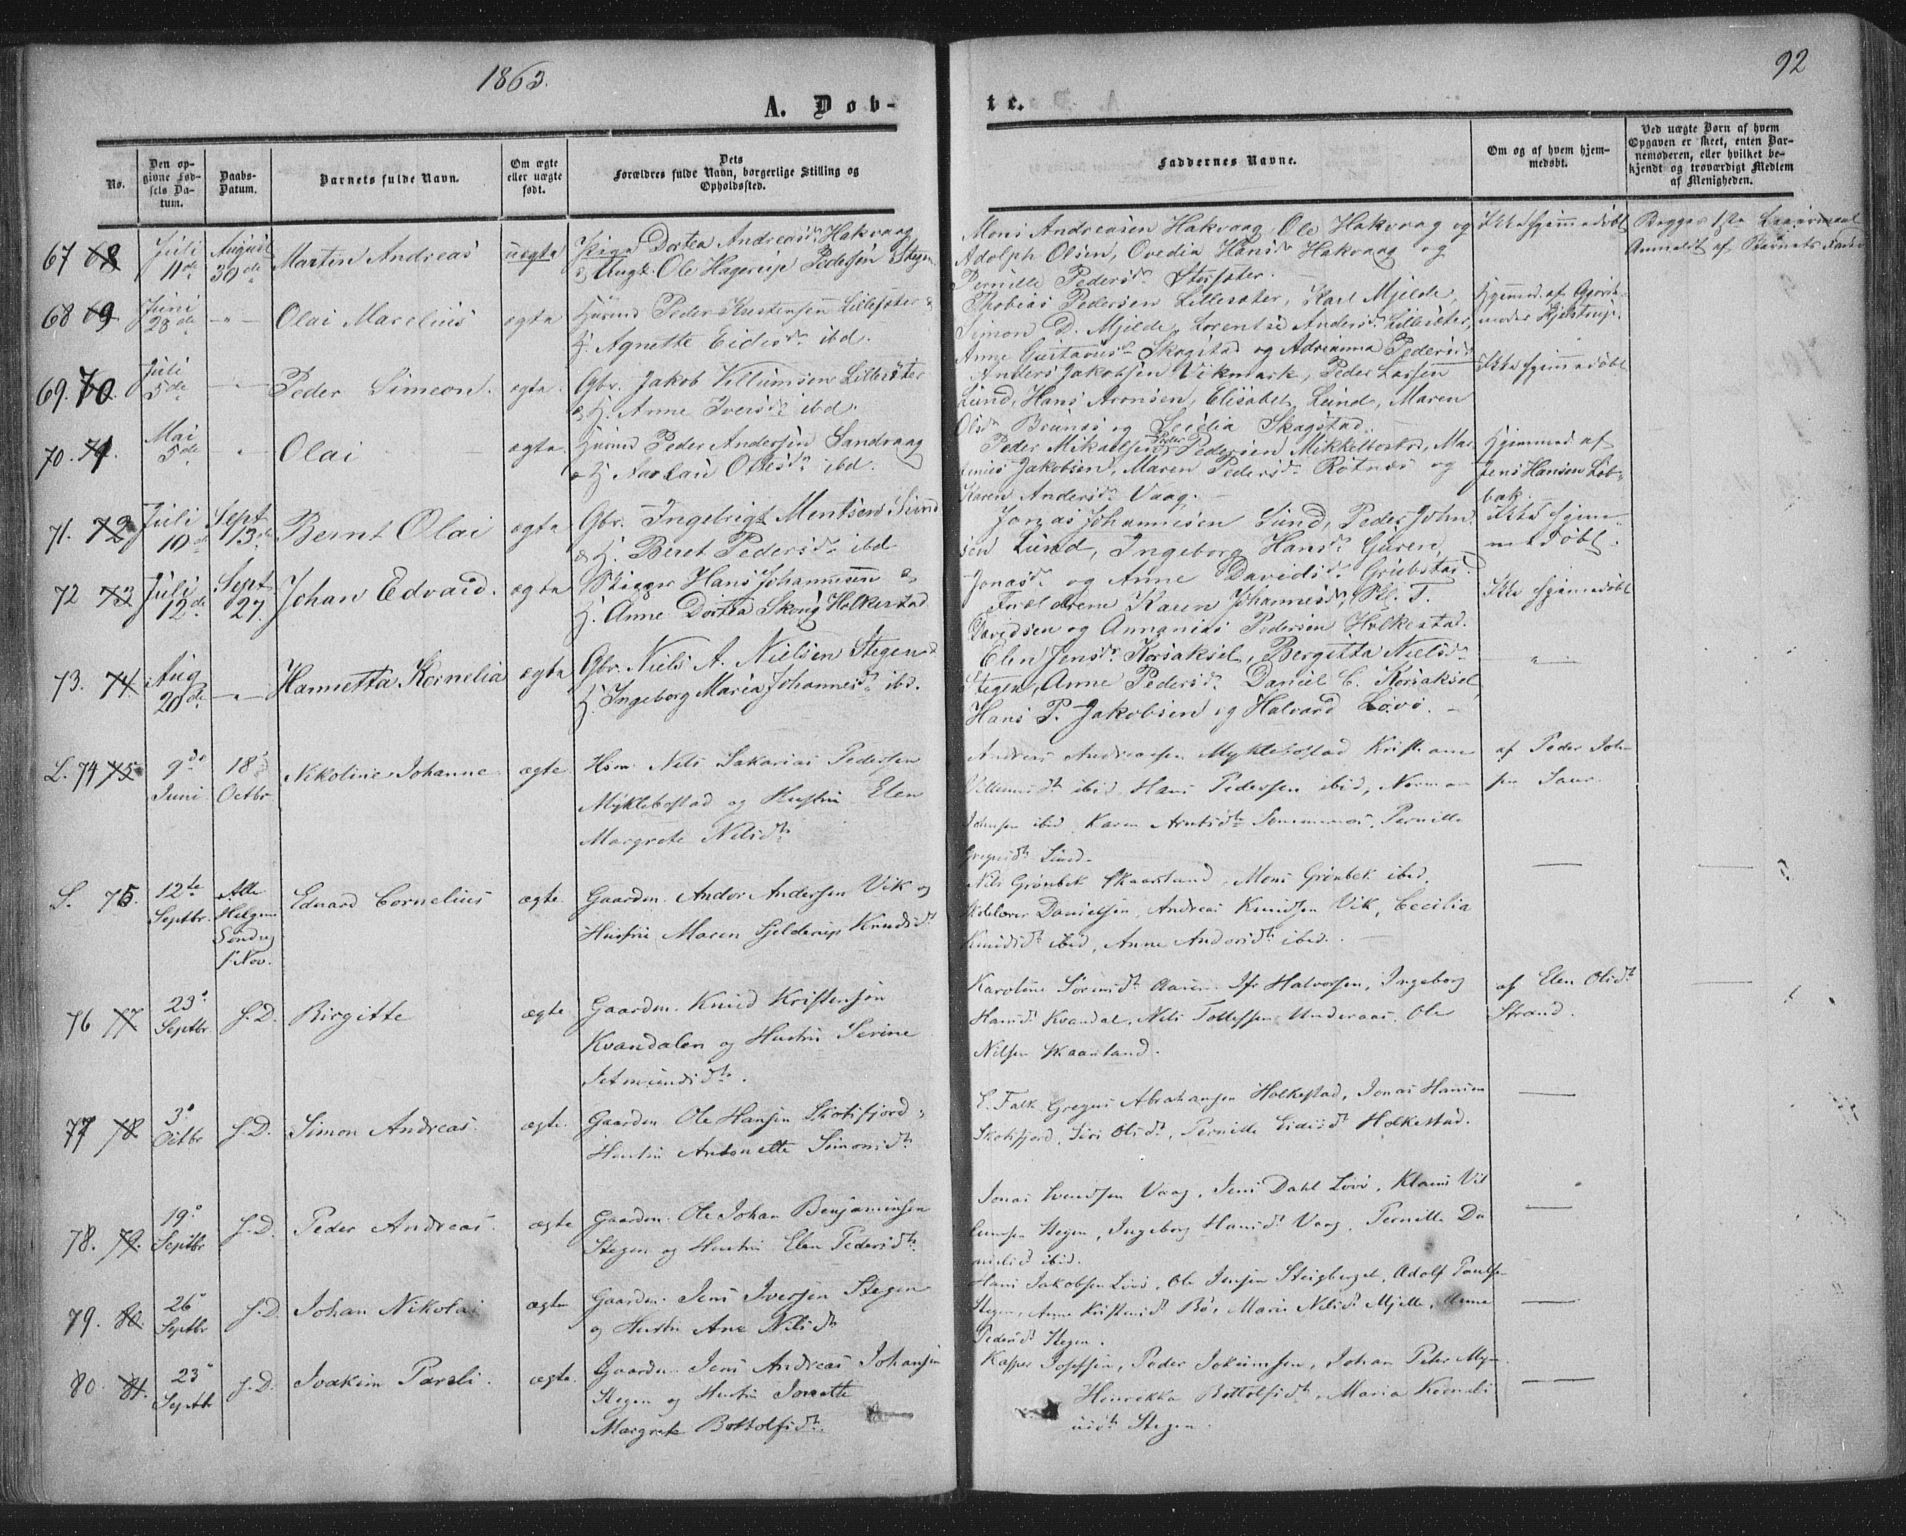 1863.
92
A. Døb-
te.
No.
Den op-
givne Fød-
sels Da-
tum.
Daabs-
Datum.
Barnets fulde Navn.
Om ægte
eller uægte
født.
Dets
Forældres fulde Navn, borgerlige Stilling og
Opholdssted.
Faddernes Navne.
Om og af hvem hjem-
medøbt.
Ved uægte Børn af hvem
Opgaven er skeet, enten Bar-
nemoderen, eller hvilket be-
kjendt og troværdigt Medlem
af Menigheden.
67 68 Juli 11te August 30de Martin Andreas uægte Pige Dortea Andreasd. Hakvaag
& Ungk. Ole Hagerup Pedersen Stegen
Mons Andreasen Hakvaag, Ole Hakvaag og
Adolph Olsen, Ovedia Hansd. Hakvaag og
Pernille Pedersd. Storsæter.
Ikke hjemmedøbt
Begges 1ste Leiermaal
Anmeldt af Barnets Fader
68 69 Juni 28de -"- Olai Marelius ægte Huusmd Peder Kristensen Lillesæter &
H. Agnette Eidisd. ibd.
Thobias Pedersen Lillesæter, Karl Mjelde,
Simon D. Mjelde, Lorentse Andersd. Lillesæter,
Anne Gustavusd. Skogstad og Adrianna Pedersd.
Hjemmed. af
69. 70. Juli 5de -"- Peder Simeon. ægte. Gbr. Jakob Villumsen Lillesæter
& H. Anne Iversd. ibd.
Anders Jakobsen Vikmark, Peder Larsen
Lund, Hans Aronsen, Elisabet Lund, Maren
Olsd. Brunø og Seselia Skogstad.
Ikke hjemmedøbt
70. 71. Mai 5de " Olai ægte. Huusmd Peder Andersen Sandvaag
& H. Olsd. ibd.
Peder Mikaelsen, Peder Pedersen Mikkelbostad, Mar-
Jakobsen, Maren Pedersd. Rotnes og
Karen Andersd. Vaag.
Hjemmed. af
Jens Hansen Løb-
bak.
71. 72 Juli 10de Sept 13de Bernt Olai ægte Gbr. Ingebrigt Mentsen Lund
& H. Beret Pedersd. ibd.
Jonas Johannesen Lund, Peder John-
sen Lund, Ingeborg Hansd.
Jonasd. og Anne Davidsd.
Ikke hjem-
medøbt.
72 73 Juli 12te Sept 27. Johan Edvard. ægte Hans Johannesen &
H. Anne Dortea Skong Holkestad
Forældrene Karen Johannesd.
Davidsen og Annanias Pedersen Holkestad.
Ikke hjemmedøbt
73. 74 Aug 20de -"- Hannetta Kornelia ægte Gbr. Niels A. Nielsen Stegen &
H. Ingeborg Maria Johannesd. ibd.
Elen Jensd. Korsaksel, Bergetta Nielsd.
Stegen, Anne Pedersd. Daniel C. Korsaksel
Hans P. Jakobsen og Halvard Løvø.
-"-
L. 74 75 9de Juni 18de Octbr Nikoline Johanne ægte Hsm. Nils Sakarias Pedersen
Myklebostad og Hustru Elen
Margrete Nilsdtr
Andreas Andreassen Myklebostad Kristiane
Villumsdtr ibid, Hans Pedersen ibid, Norman
Johnsen ibid, Karen Arntsdtr Pernille
Gregusdtr Lund.
af Peder Joh-
sen Saur.
S. 75. 12te Septbr. Alle
Helgens
Søndag
1 Nov.
Edvard Cornelius ægte. Gaardm. Andor Andersen Vik og
Hustru Maren Hjelderup Knudsdtr
Nils Grønbek Skaarland, Mons Grønbek ibid,
Skolelærer Danielsen, Andreas Knudsen Vik, Cecilia
Knudsdtr ibid, Anne Andorsdtr ibid.
76 77 23de Septbr S.D. Birgitte ægte Gaardm. Knud Kristensen
Kvandalen og Hustru Serine
Karoline Halvorsen, Ingeborg
Hansd. Kvandal, Nils Tollefsen Underaas, Ole
Nilsen Skaarland.
af Elen Olsdtr
Strand.
77 78 3de Octbr S.D. Simon Andreas. ægte. Gaardm. Ole Hansen Skotsfjord &
Hustru Antonette Simonsdtr
E. Falk Gregus Abrahamsen Holkestad, Jonas Hansen
Skotsfjord, Siri Olsdtr, Pernille Eidisdtr Holkestad.
78. 79. 19de Septbr S.D. Peder Andreas. ægte Gaardm. Ole Johan Benjaminsen
Stegen og Hustru Elen Pedersdtr.
Jonas Svendsen Vaag, Jens Dahl Løvø, Klaus Vil-
lumsen Stegen, Ingeborg Hansdtr Vaag, Pernille Da-
nielsd ibid.
79. 80. 26de Septbr S.D. Johan Nikolai ægte Gaardm. Jens Iversen Stegen
og Hustru Ane Nilsdtr
Hans Jakobsen Løvø, Ole Jensen Steigberget, Adolf Paulsen
Stegen, Anne Kristensd Bø, Maria Nilsdtr Mjelle, Anne
Pedersdtr Stegen.
80. 81. 23de Septbr S.D. Joakim Pareli. ægte. Gaardm. Jens Andreas Johansen
Stegen og Hustru Jonette
Margrete Bottolfsdtr.
Kasper Josefsen, Peder Jokumsen, Johan Peter
Henrikka Bottolfsdtr, Maria Korneli-
usdtr Stegen.